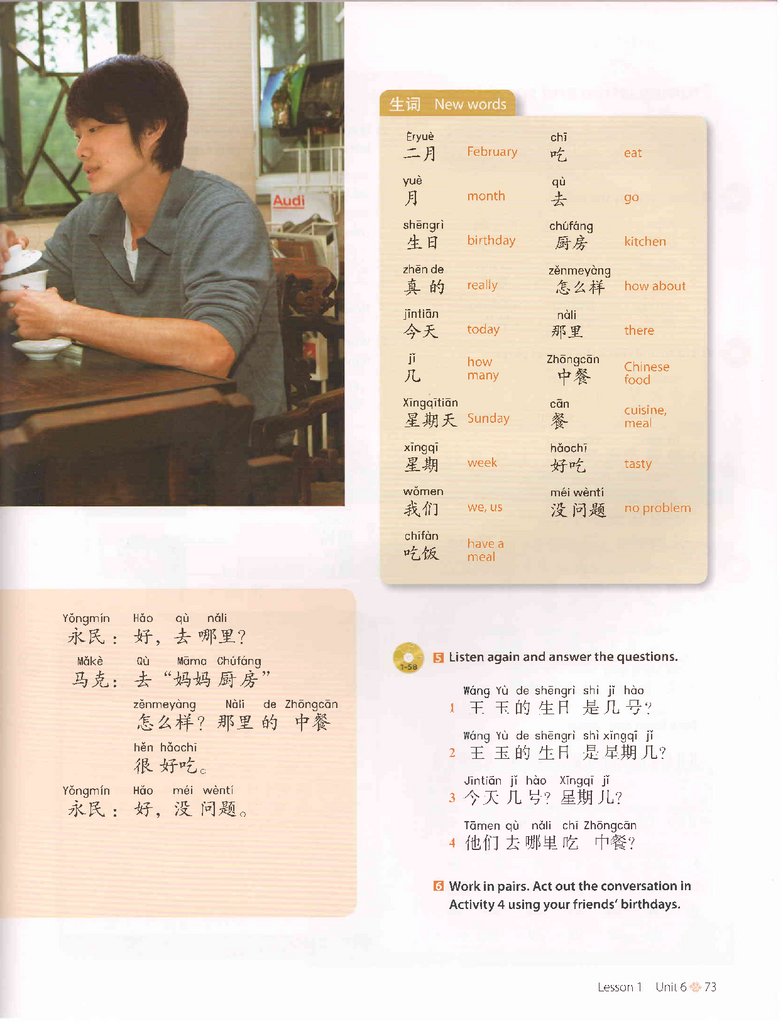 Audi
生词 New words
Èryuè
二月 February
yuè
月 month
shēngrì
生日 birthday
zhēn de
真 的 really
jīntiān
今天 today
jǐ
几 how many
Xīngqītiān
星期天 Sunday
xīngqī
星期 week
wǒmen
我们 we, us
chīfàn
吃饭 have a meal
chī
吃 eat
qù
去 go
chúfáng
厨房 kitchen
zěnmeyàng
怎么样 how about
nàli
那里 there
Zhōngcān
中餐 Chinese food
cān
餐 cuisine, meal
hǎochī
好吃 tasty
méi wèntí
没 问题 no problem
Yǒngmín Hǎo qù nǎli
永民：好，去 哪里？
Mǎkè Qù Māma Chúfáng
马克：去“妈妈 厨房”
zěnmeyàng Nàli de Zhōngcān
怎么样？那里 的 中餐
hěn hǎochī
很 好吃。
Yǒngmín Hǎo méi wèntí
永民：好，没 问题。
1-58
5 Listen again and answer the questions.
Wáng Yù de shēngri shì jǐ hào
1 王 玉 的 生日 是 几 号？
Wáng Yù de shēngri shì xīngqī jǐ
2 王 玉 的 生日 是 星期 几？
Jīntiān jǐ hào Xīngqī jǐ
3 今天 几 号？星期 几？
Tāmen qù nǎli chī Zhōngcān
4 他们 去 哪里 吃 中餐？
6 Work in pairs. Act out the conversation in
Activity 4 using your friends' birthdays.
Lesson 1 Unit 6 73